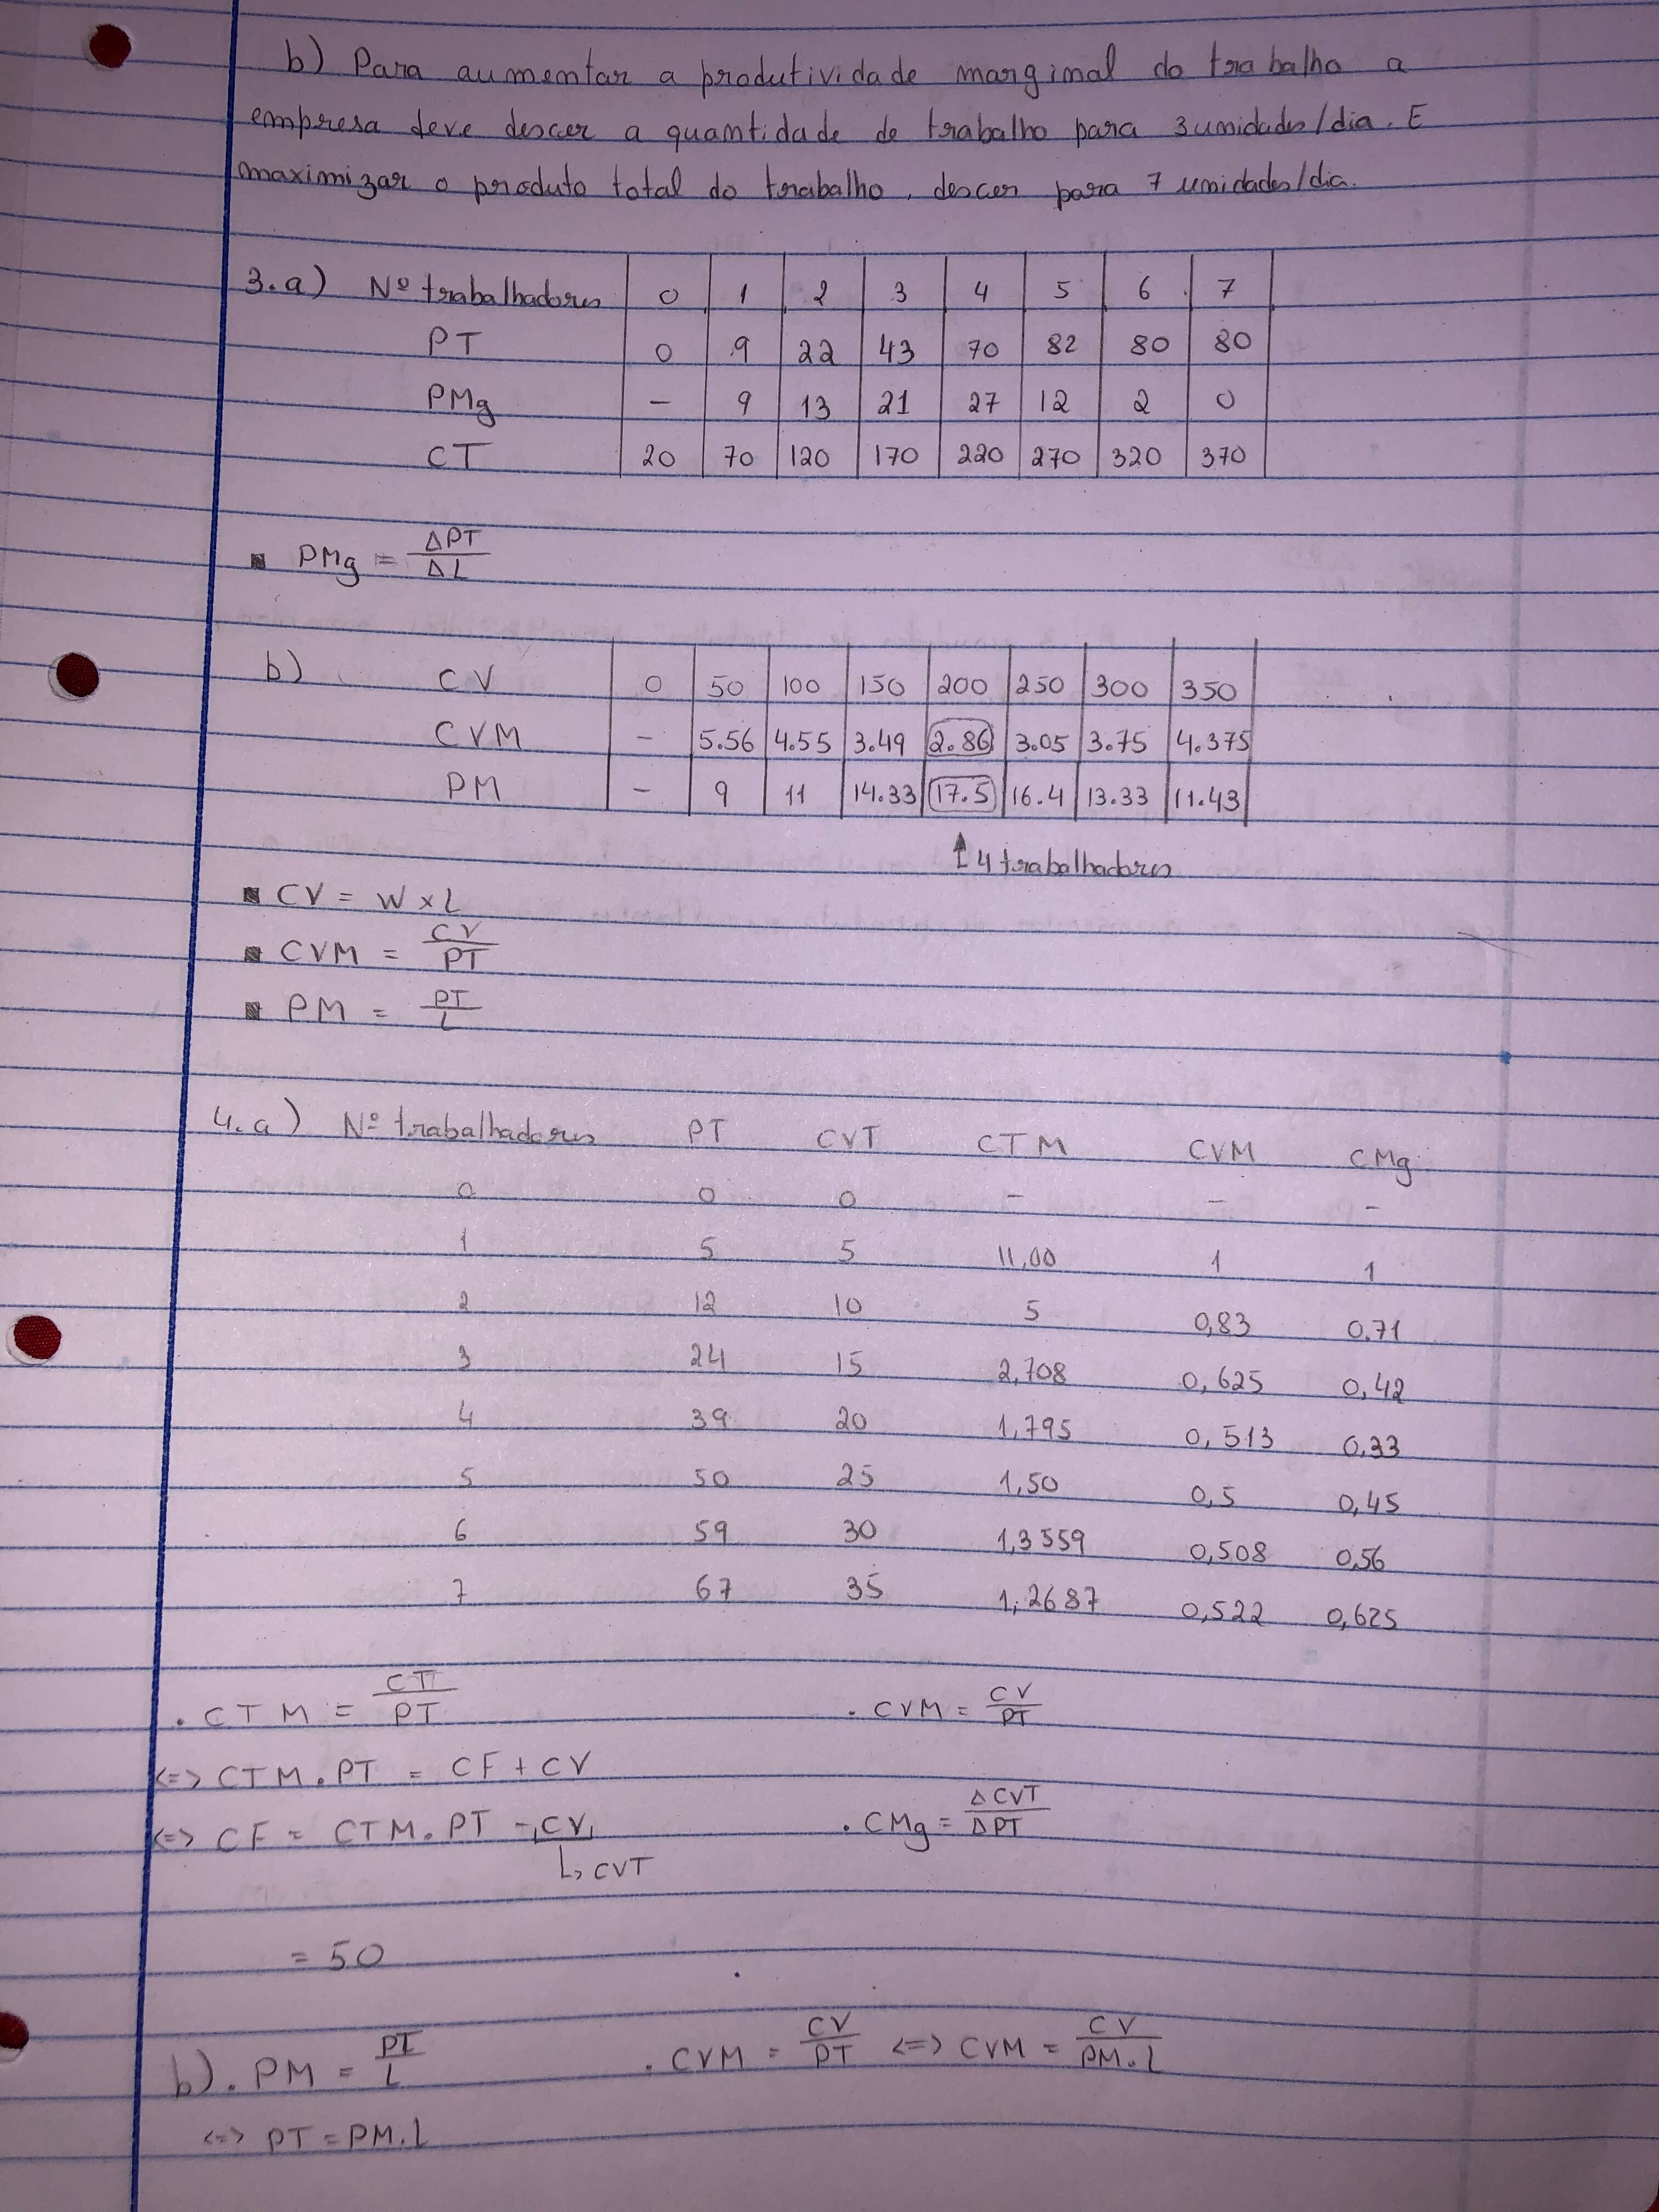 b) Para aumentar a produtividade marginal do trabalho a
empresa deve descer a quantidade de trabalho para 3 unidades/dia. E
maximizar o produto total do trabalho, descer para 7 unidades/dia.
3.a) Nº trabalhadores 0 1 2 3 4 5 6 7
PT 0 9 22 43 70 82 80 80
PMg – 9 13 21 27 12 2 0
CT 20 70 120 170 220 270 320 370
▪ PMg = ΔPT/ΔL
b) CV 0 50 100 150 200 250 300 350
CVM – 5.56 4.55 3.49 2.86 3.05 3.75 4.375
PM – 9 11 14.33 17.5 16.4 13.33 11.43
↑ 4 trabalhadores
▪ CV = W x L
▪ CVM = CV/PT
▪ PM = PT/L
4.a) Nº trabalhadores PT CVT CTM CVM CMg
0 0 0 – – –
1 5 5 11,00 1 1
2 12 10 5 0,83 0.71
3 24 15 2,708 0,625 0,42
4 39 20 1,795 0,513 0,33
5 50 25 1,50 0,5 0,45
6 59 30 1,3559 0,508 0,56
7 67 35 1,2687 0,522 0,625
. CTM = CT/PT . CVM = CV/PT
<=> CTM.PT = CF + CV
<=> CF = CTM.PT - CV . CMg = ΔCVT/ΔPT
↳ CVT
= 50
b). PM = PT/L . CVM = CV/PT <=> CVM = CV/PM.L
<=> PT = PM.L